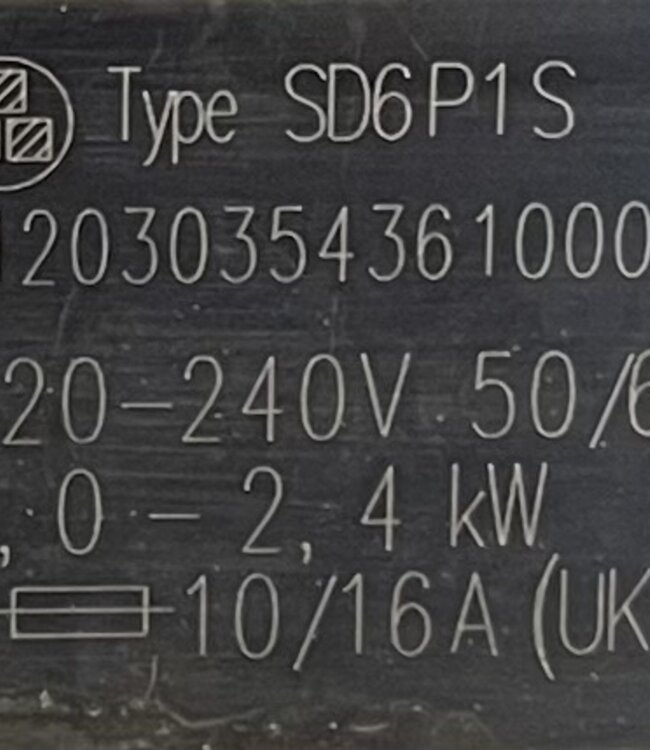 Type SD6P1S
2030354361000
20-240V 50/6
,0-2,4 kW
10/16A (UK